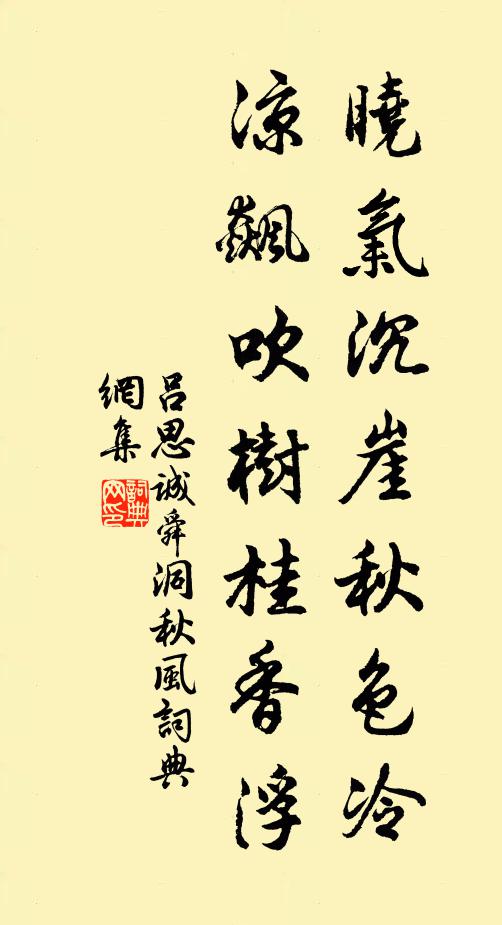 曉氣沉崖秋色冷
涼飆吹樹桂香浮
呂思誠舜洞秋風詞典
網集
詞典
网印